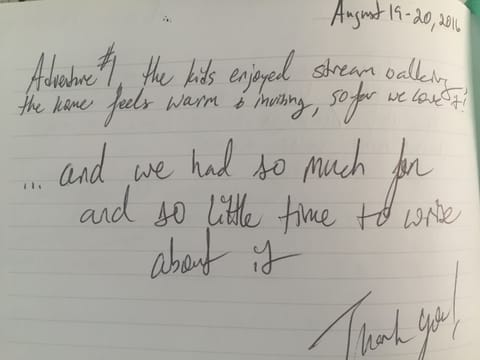 August 19-20, 2016
Adventure #1, the kids enjoyed stream walking,
the home feels warm & inviting, so far we love it!
... and we had so much fun
and so little time to write
about it
Thank you!